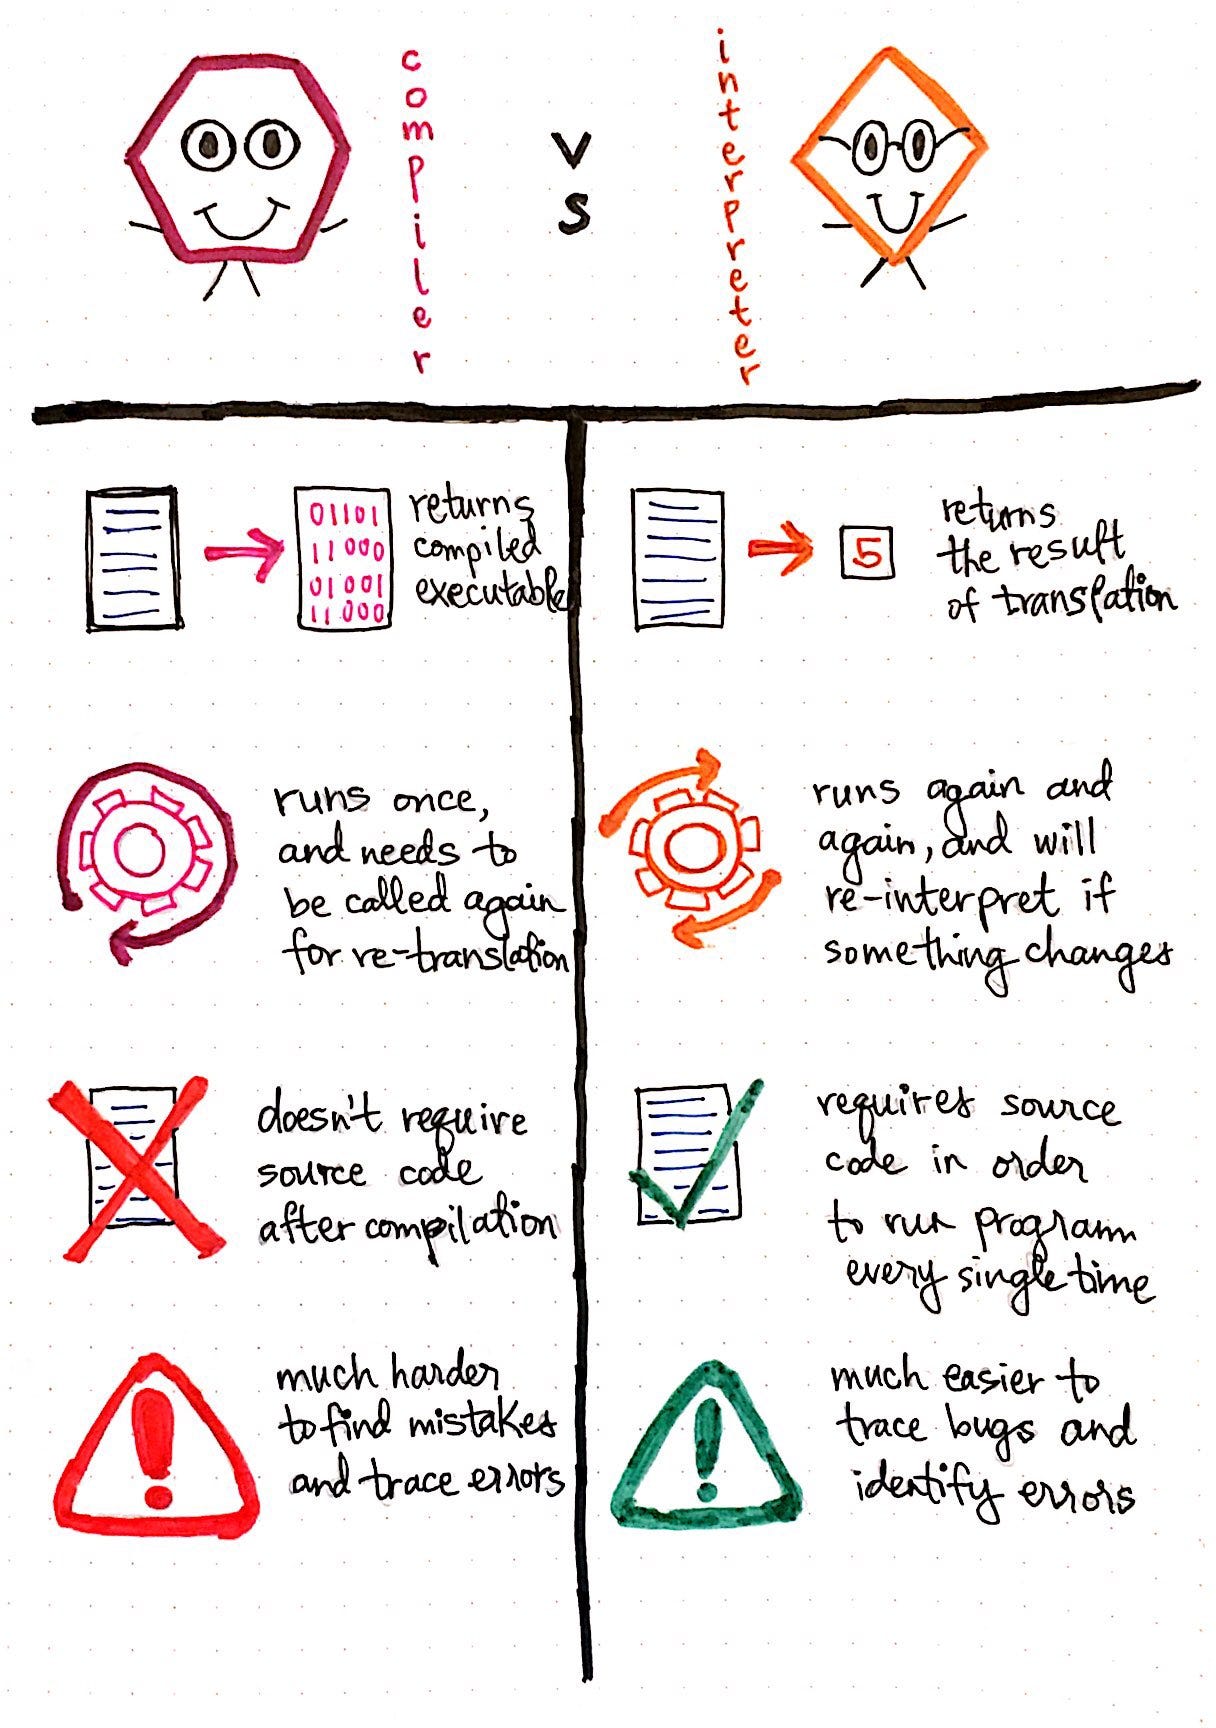 compiler
vs
interpreter
01101
11000
01001
11000
returns
compiled
executable
5
returns
the result
of translation
runs once,
and needs to
be called again
for re-translation
runs again and
again, and will
re-interpret if
something changes
doesn't require
source code
after compilation
requires source
code in order
to run program
every single time
much harder
to find mistakes
and trace errors
much easier to
trace bugs and
identify errors